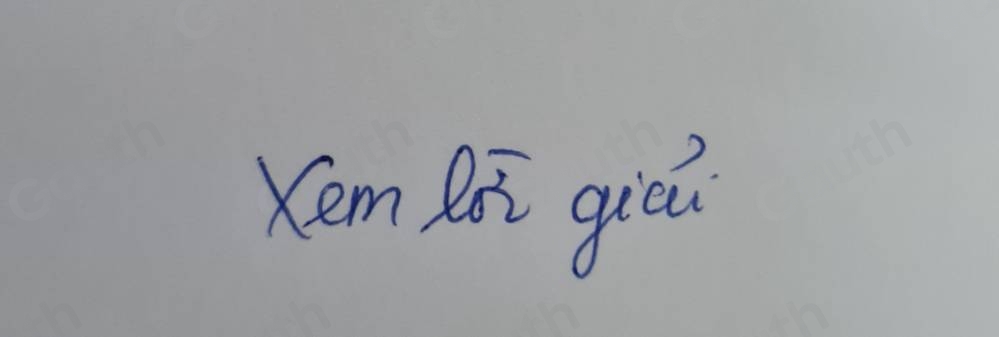 Xem lời giải